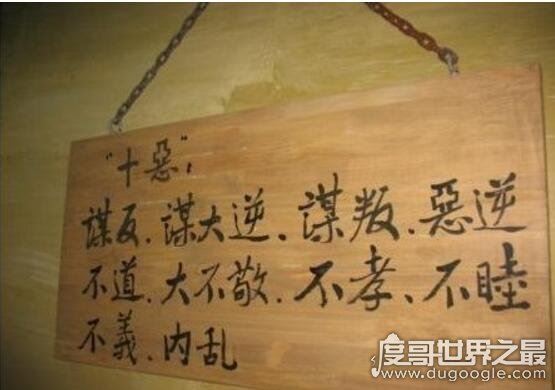 "十惡"：
謀反、謀大逆、謀叛、惡逆
不道、大不敬、不孝、不睦
不義、内乱
度哥世界之最
www.dugoogle.com